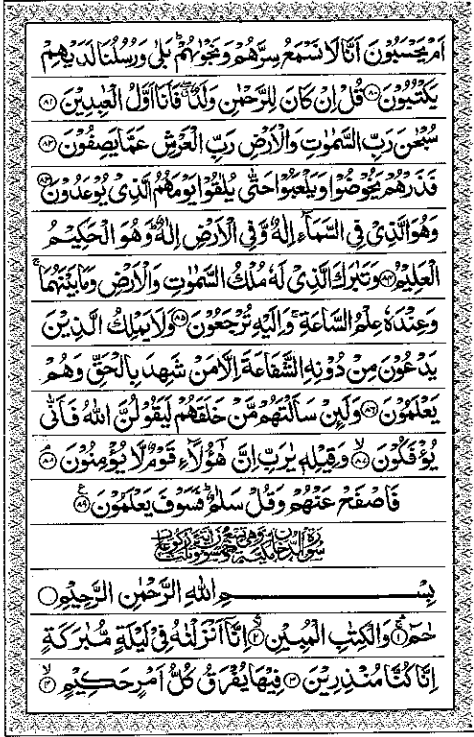 اَمْ يَحْسَبُوْنَ اَنَّا لَا نَسْمَعُ سِرَّهُمْ وَنَجْوٰىهُمْ ؕ بَلٰى وَرُسُلُنَا لَدَيْهِمْ
يَكْتُبُوْنَ ۝۸۰ قُلْ اِنْ كَانَ لِلرَّحْمٰنِ وَلَدٌ ۖ فَاَنَا اَوَّلُ الْعٰبِدِيْنَ ۝۸۱
سُبْحٰنَ رَبِّ السَّمٰوٰتِ وَالْاَرْضِ رَبِّ الْعَرْشِ عَمَّا يَصِفُوْنَ ۝۸۲
فَذَرْهُمْ يَخُوْضُوْا وَيَلْعَبُوْا حَتّٰى يُلٰقُوْا يَوْمَهُمُ الَّذِىْ يُوْعَدُوْنَ ۝۸۳
وَهُوَ الَّذِىْ فِى السَّمَآءِ اِلٰهٌ وَّفِى الْاَرْضِ اِلٰهٌ ؕ وَهُوَ الْحَكِيْمُ
الْعَلِيْمُ ۝۸۴ وَتَبٰرَكَ الَّذِىْ لَهٗ مُلْكُ السَّمٰوٰتِ وَالْاَرْضِ وَمَا بَيْنَهُمَا ۚ
وَعِنْدَهٗ عِلْمُ السَّاعَةِ ۚ وَاِلَيْهِ تُرْجَعُوْنَ ۝۸۵ وَلَا يَمْلِكُ الَّذِيْنَ
يَدْعُوْنَ مِنْ دُوْنِهِ الشَّفَاعَةَ اِلَّا مَنْ شَهِدَ بِالْحَقِّ وَهُمْ
يَعْلَمُوْنَ ۝۸۶ وَلَئِنْ سَاَلْتَهُمْ مَّنْ خَلَقَهُمْ لَيَقُوْلُنَّ اللّٰهُ فَاَنّٰى
يُؤْفَكُوْنَ ۙ۝۸۷ وَقِيْلِهٖ يٰرَبِّ اِنَّ هٰٓؤُلَآءِ قَوْمٌ لَّا يُؤْمِنُوْنَ ۘ۝۸۸
فَاصْفَحْ عَنْهُمْ وَقُلْ سَلٰمٌ ؕ فَسَوْفَ يَعْلَمُوْنَ ۝۸۹
بِسْمِ اللّٰهِ الرَّحْمٰنِ الرَّحِيْمِ ۝
حٰمٓ ۚ۝۱ وَالْكِتٰبِ الْمُبِيْنِ ۙ۝۲ اِنَّاۤ اَنْزَلْنٰهُ فِىْ لَيْلَةٍ مُّبٰرَكَةٍ
اِنَّا كُنَّا مُنْذِرِيْنَ ۝۳ فِيْهَا يُفْرَقُ كُلُّ اَمْرٍ حَكِيْمٍ ۙ۝۴